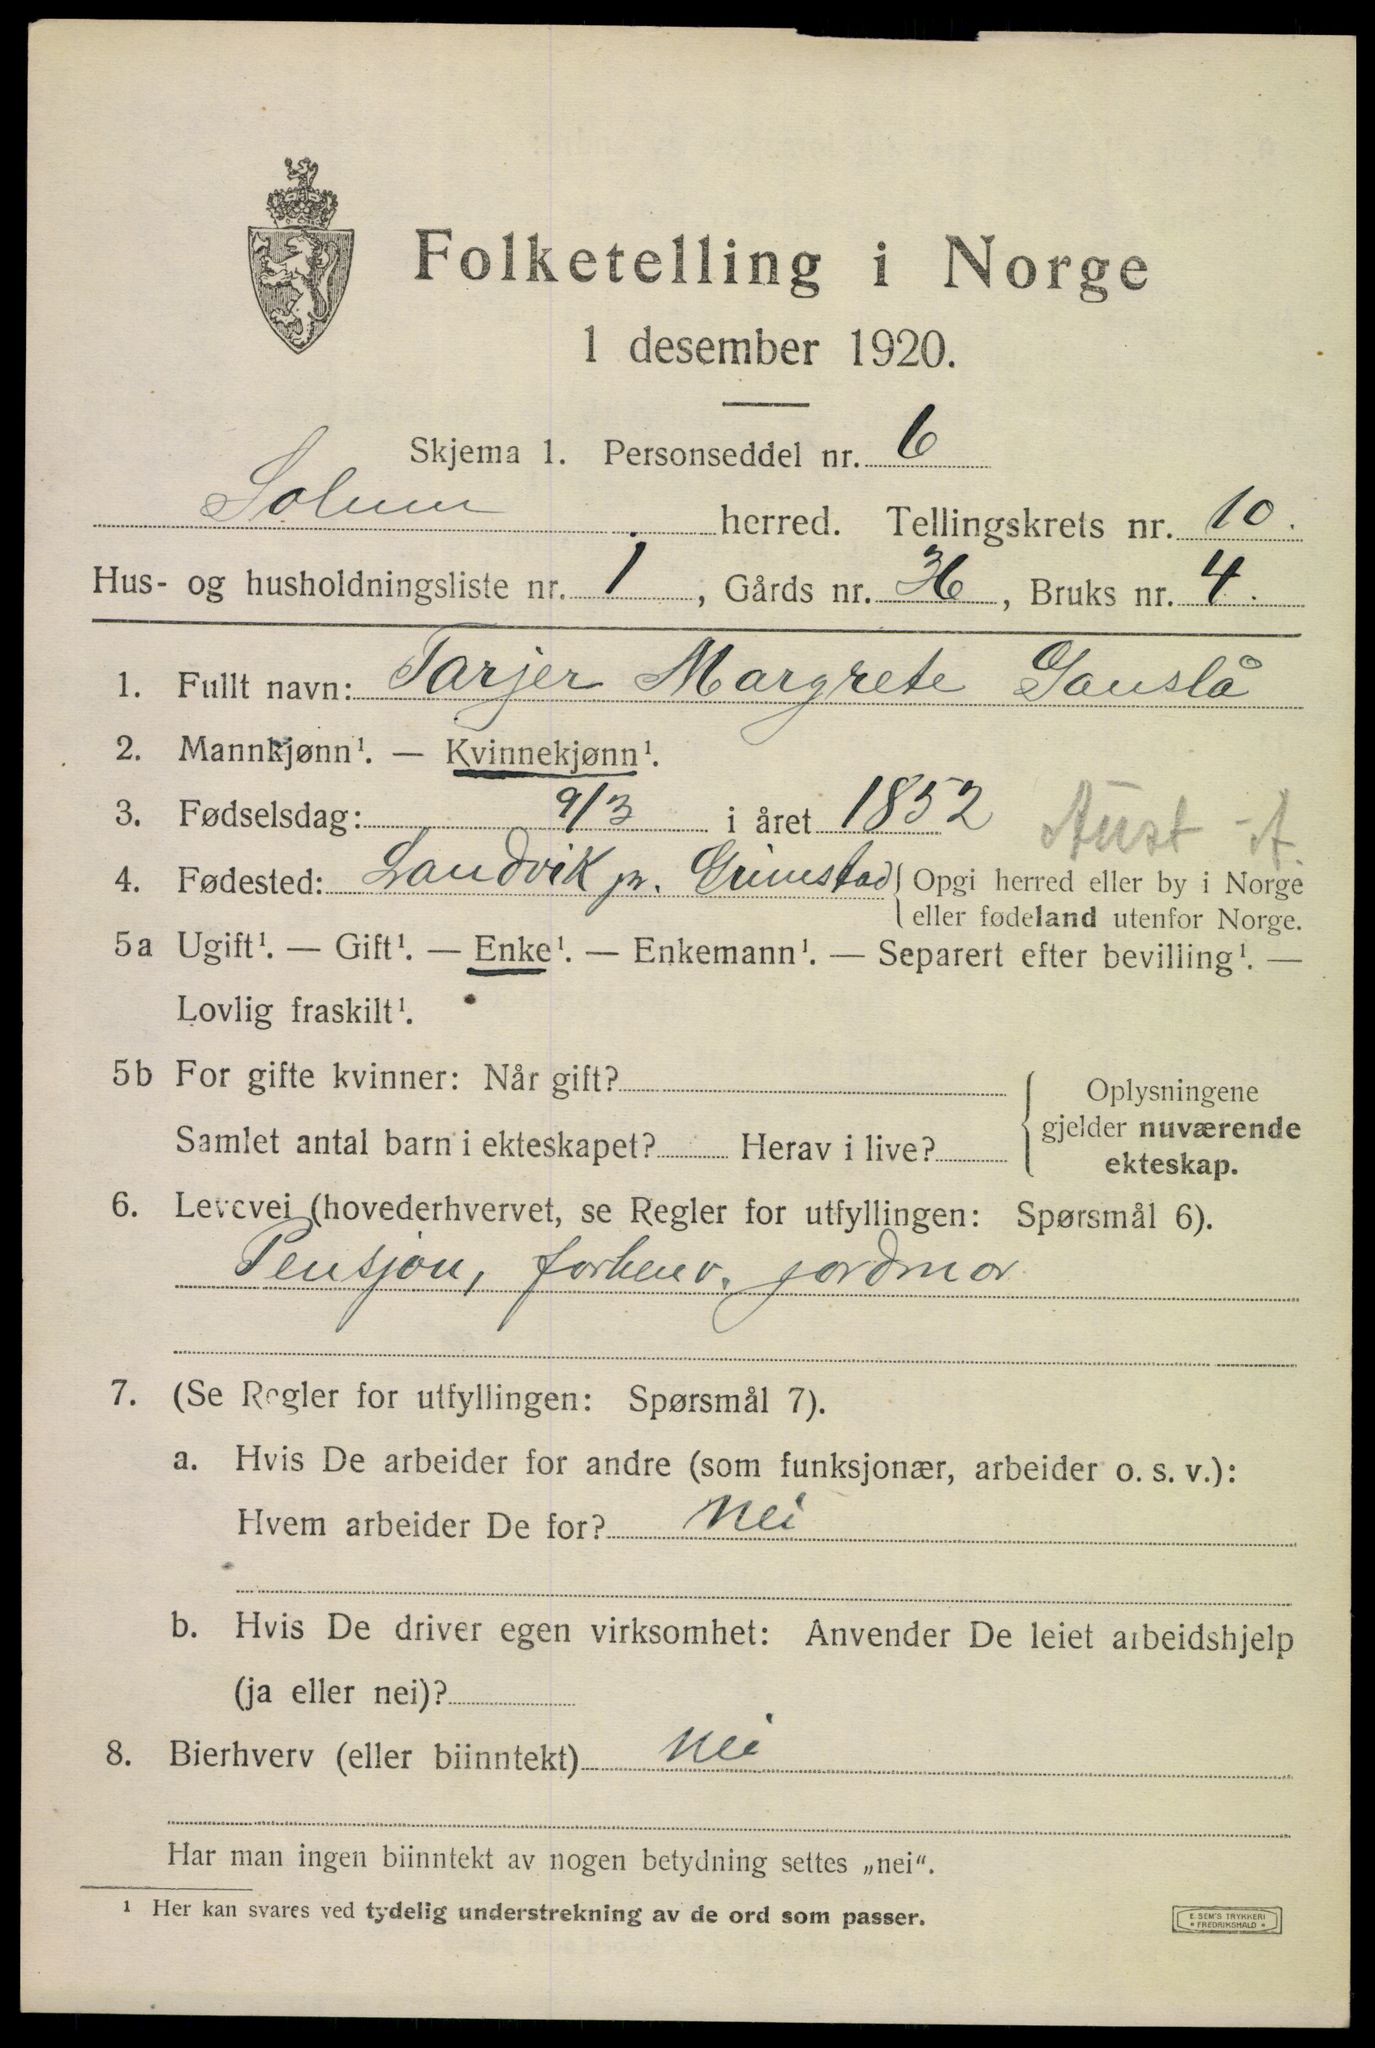 Folketelling i Norge
1 desember 1920.
Skjema 1. Personseddel nr. 6
Solum herred. Tellingskrets nr. 10.
Hus- og husholdningsliste nr. 1, Gårds nr. 36, Bruks nr. 4.
1. Fullt navn: Tarjer Margrete Gauslå
2. Mannkjønn¹. — Kvinnekjønn¹.
3. Fødselsdag: 9/3 i året 1852 Aust-A.
4. Fødested: Landvik pr. Grimstad { Opgi herred eller by i Norge
eller fødeland utenfor Norge.
5a Ugift¹. — Gift¹. — Enke¹. — Enkemann¹. — Separert efter bevilling¹. —
Lovlig fraskilt¹.
5b For gifte kvinner: Når gift?
Samlet antal barn i ekteskapet? Herav i live?
Oplysningene
gjelder nuværende
ekteskap.
6. Levevei (hovederhvervet, se Regler for utfyllingen: Spørsmål 6).
Pensjon, forhenv. jordmor
7. (Se Regler for utfyllingen: Spørsmål 7).
a. Hvis De arbeider for andre (som funksjonær, arbeider o. s. v.):
Hvem arbeider De for? Nei
b. Hvis De driver egen virksomhet: Anvender De leiet arbeidshjelp
(ja eller nei)?
8. Bierhverv (eller biinntekt) Nei
Har man ingen biinntekt av nogen betydning settes „nei“.
¹ Her kan svares ved tydelig understrekning av de ord som passer.
E. SEM'S TRYKKERI
* FREDRIKSHALD *